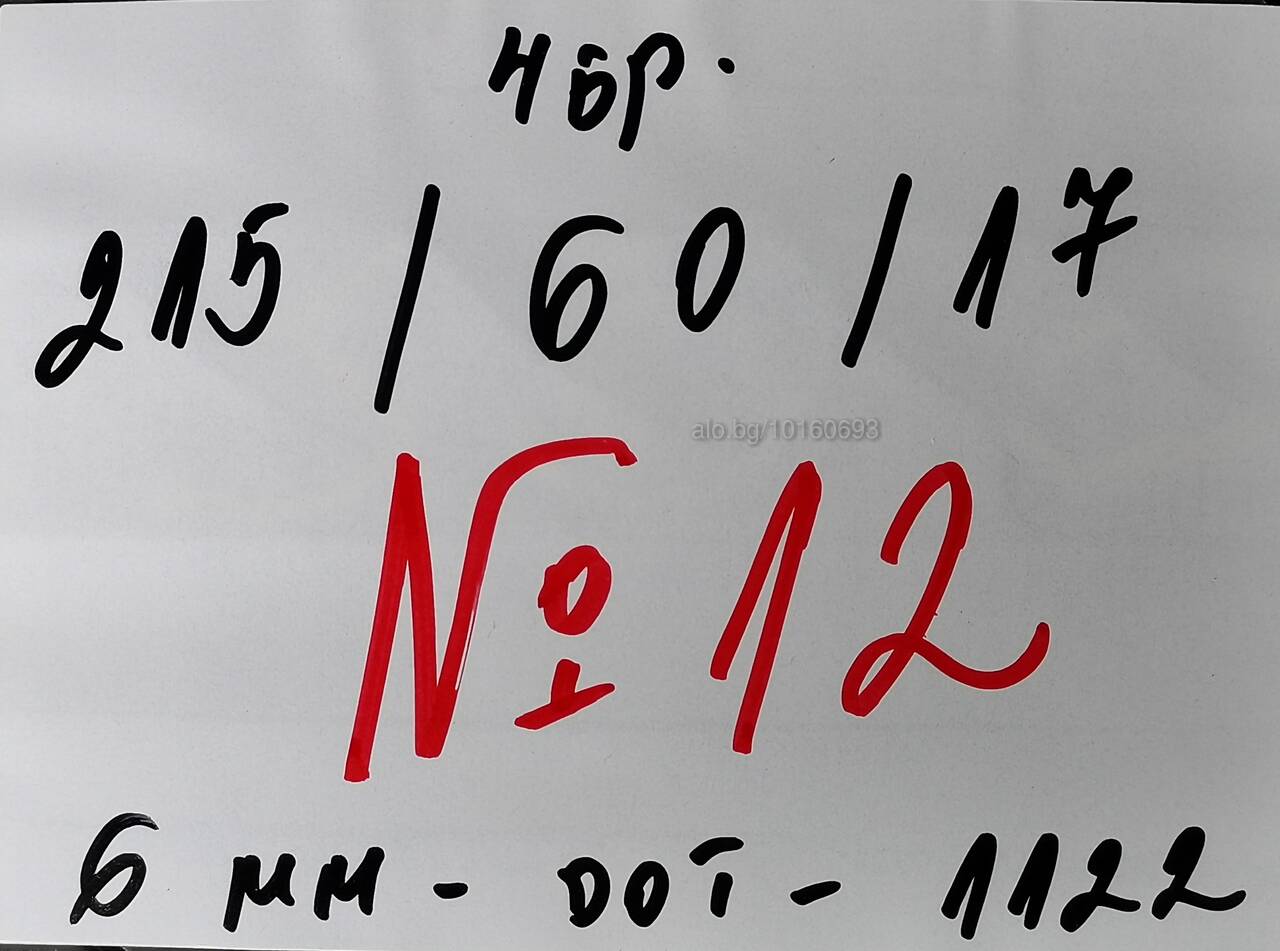 4бр.
215/60/17
alo.bg/10160693
№ 12
6 мм - DOT - 1122